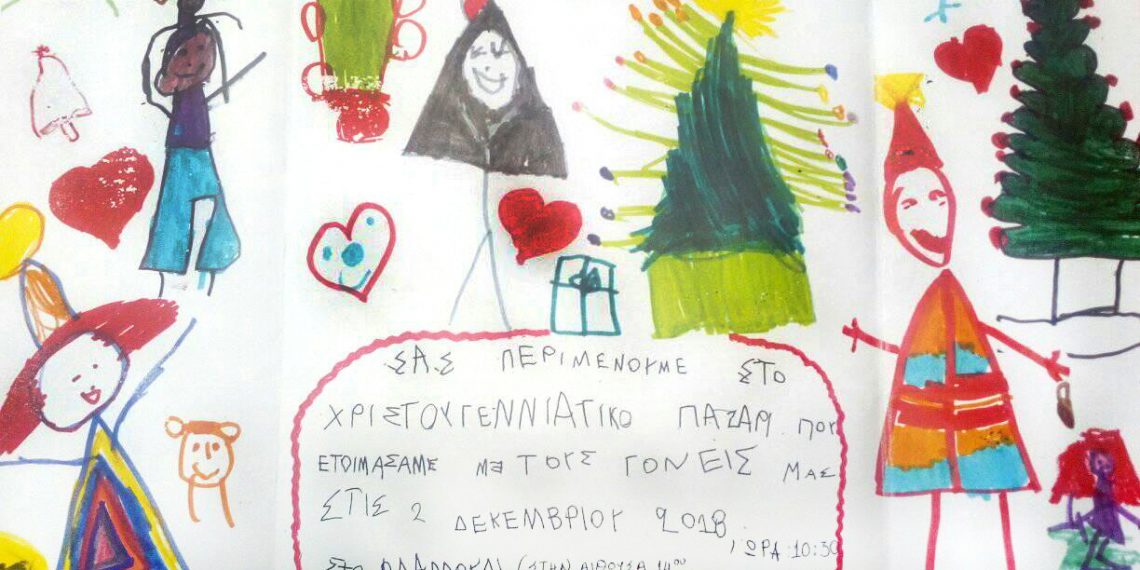 ΣΑΣ ΠΕΡΙΜΕΝΟΥΜΕ ΣΤΟ
ΧΡΙΣΤΟΥΓΕΝΝΙΑΤΙΚΟ ΠΑΖΑΡΙ ΠΟΥ
ΕΤΟΙΜΑΣΑΜΕ ΜΕ ΤΟΥΣ ΓΟΝΕΙΣ ΜΑΣ
ΣΤΙΣ 2 ΔΕΚΕΜΒΡΙΟΥ 2018
, ΩΡΑ :10:30
ΣΤΟ (ΣΤΗΝ ΑΙΘΟΥΣΑ 14ου